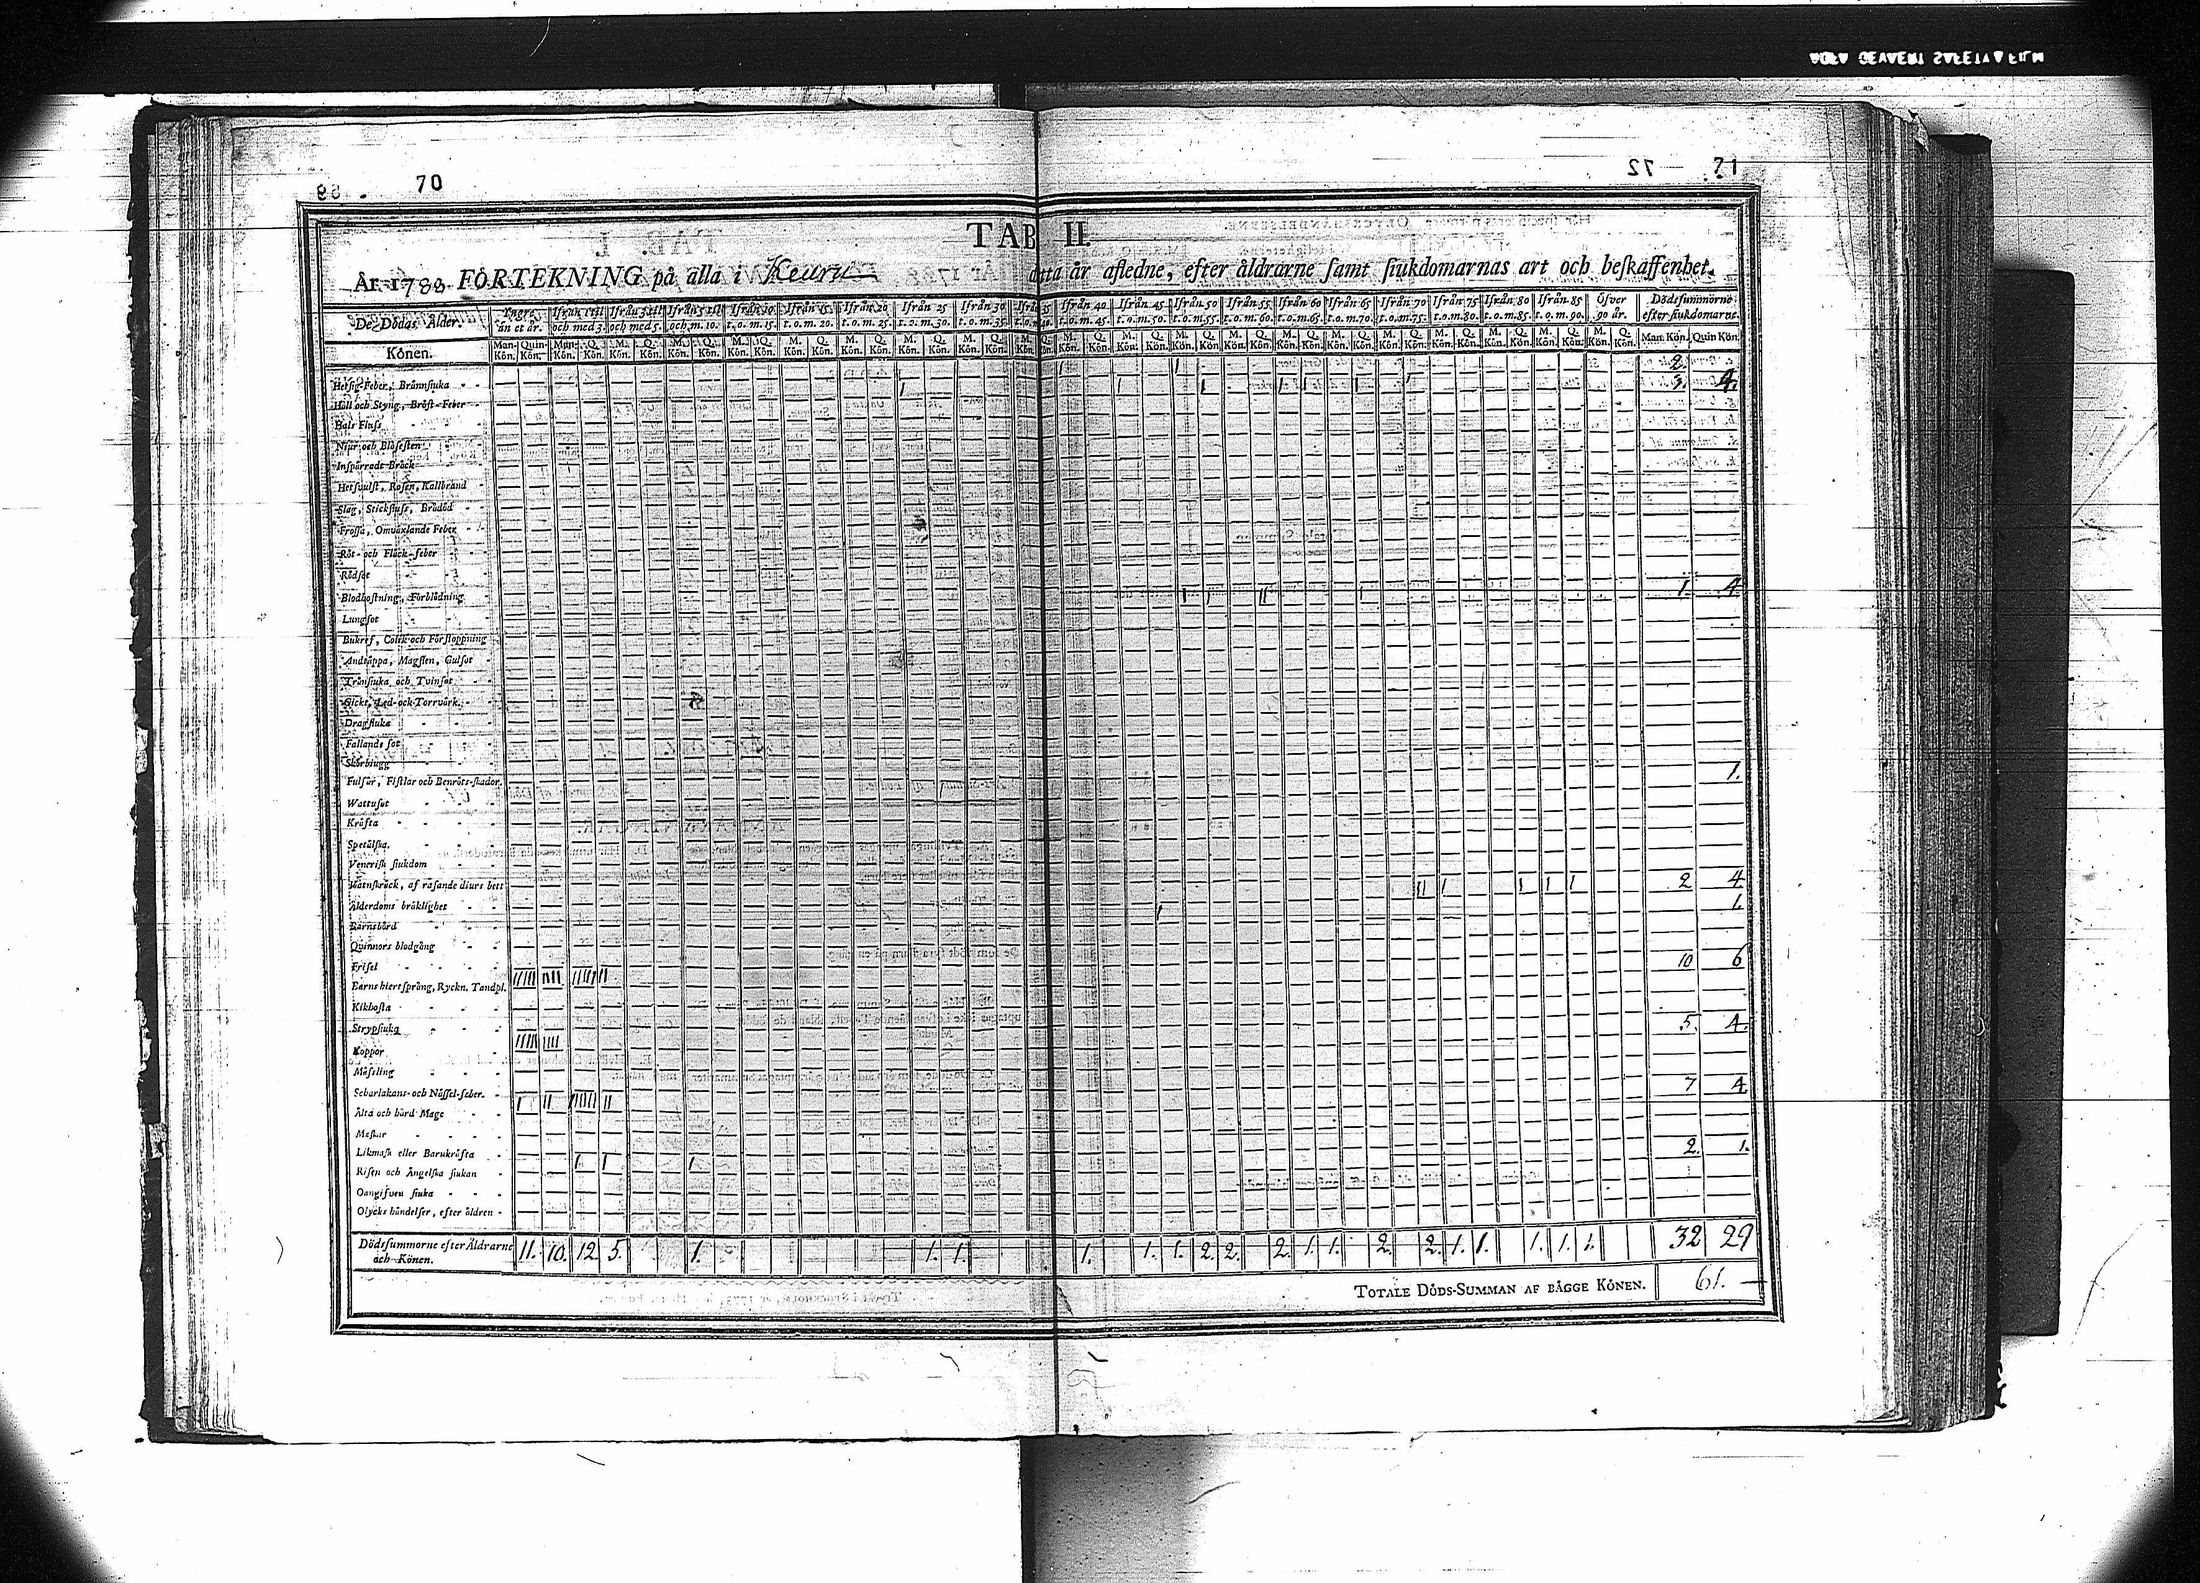 70
72 71
TAB II.
År 1788 FÖRTEKNING på alla i Keuru detta år afledne, efter åldrarne samt siukdomarnas art och beskaffenhet.
De Dödas Ålder. Yngre än et år. Ifrån 1 til och med 3. Ifrån 3 til och med 5. Ifrån 5 til och m. 10. Ifrån 10 t.o.m. 15. Ifrån 15 t.o.m. 20. Ifrån 20 t.o.m. 25. Ifrån 25 t.o.m. 30. Ifrån 30 t.o.m. 35. Ifrån 35 Ifrån 40 t.o.m. 45. Ifrån 45 t.o.m. 50. Ifrån 50 t.o.m. 55. Ifrån 55 t.o.m. 60. Ifrån 60 t.o.m. 65. Ifrån 65 t.o.m. 70. Ifrån 70 t.o.m. 75. Ifrån 75 t.o.m. 80. Ifrån 80 t.o.m. 85. Ifrån 85 t.o.m. 90. Öfver 90 år. Dödssummorne efter siukdomarne.
Könen. Man-Kön. Quin-Kön. Man-Kön. Q. Kön. M. Kön. Q. Kön. M. Kön. Q. Kön. M. Kön. Q. Kön. M. Kön. Q. Kön. M. Kön. Q. Kön. M. Kön. Q. Kön. M. Kön. Q. Kön. M. Kön. Q. M. Kön. Q. Kön. M. Kön. Q. Kön. M. Kön. Q. Kön. M. Kön. Q. Kön. M. Kön. Q. Kön. M. Kön. Q. Kön. M. Kön. Q. Kön. M. Kön. Q. Kön. M. Kön. Q. Kön. M. Kön. Q. Kön. M. Kön. Q. Kön. Man Kön. Quin Kön.
Hetsig-Feber, Brännsiuka 2.
Håll och Styng, Bröst-Feber 3. 9.
Hals Fluss
Niur och Blåsesten
Inspärradt Bråck
Hetsvulst, Rosen, Kallbrand
Slag, Stickfluss, Brådöd
Frossa, Omväxlande Feber
Röt- och Fläck-feber
Rödsot
Blodhostning, Förblödning
Lungsot 1. 4.
Bukref, Colik och Förstoppning
Andtäppa, Magsten, Gulsot
Trånsiuka och Tvinsot
Gickt, Led- och Torrvärk
Dragsiuka
Fallande sot
Skörbiugg
Fulsår, Fistlar och Benröts-skador
Wattusot 1.
Kräfta
Spetälska
Venerisk siukdom
Watnskräck, af rasande diurs bett
Ålderdoms bräklighet 2 4
Barnsbörd 1.
Quinnors blodgång
Frisel
Barns hiertsprång, Ryckn. Tandpl. 10 6
Kikhosta
Strypsiuka
Koppor 5. 4.
Mässling
Scharlakans- och Nässel-feber
Älta och hård Mage 7 4.
Maskar
Likmask eller Barnkräfta
Risen och Ängelska siukan 2. 1.
Oangifven siuka
Olycks händelser, efter åldren
Dödssummorne efter Åldrarne och Könen. 11. 10. 12 5. 1. 1. 1. 1. 1. 1. 2. 2. 2. 1. 1. 2. 2. 1. 1. 1. 1. 1. 32 29
TOTALE DÖDS-SUMMAN AF BÄGGE KÖNEN. 61.